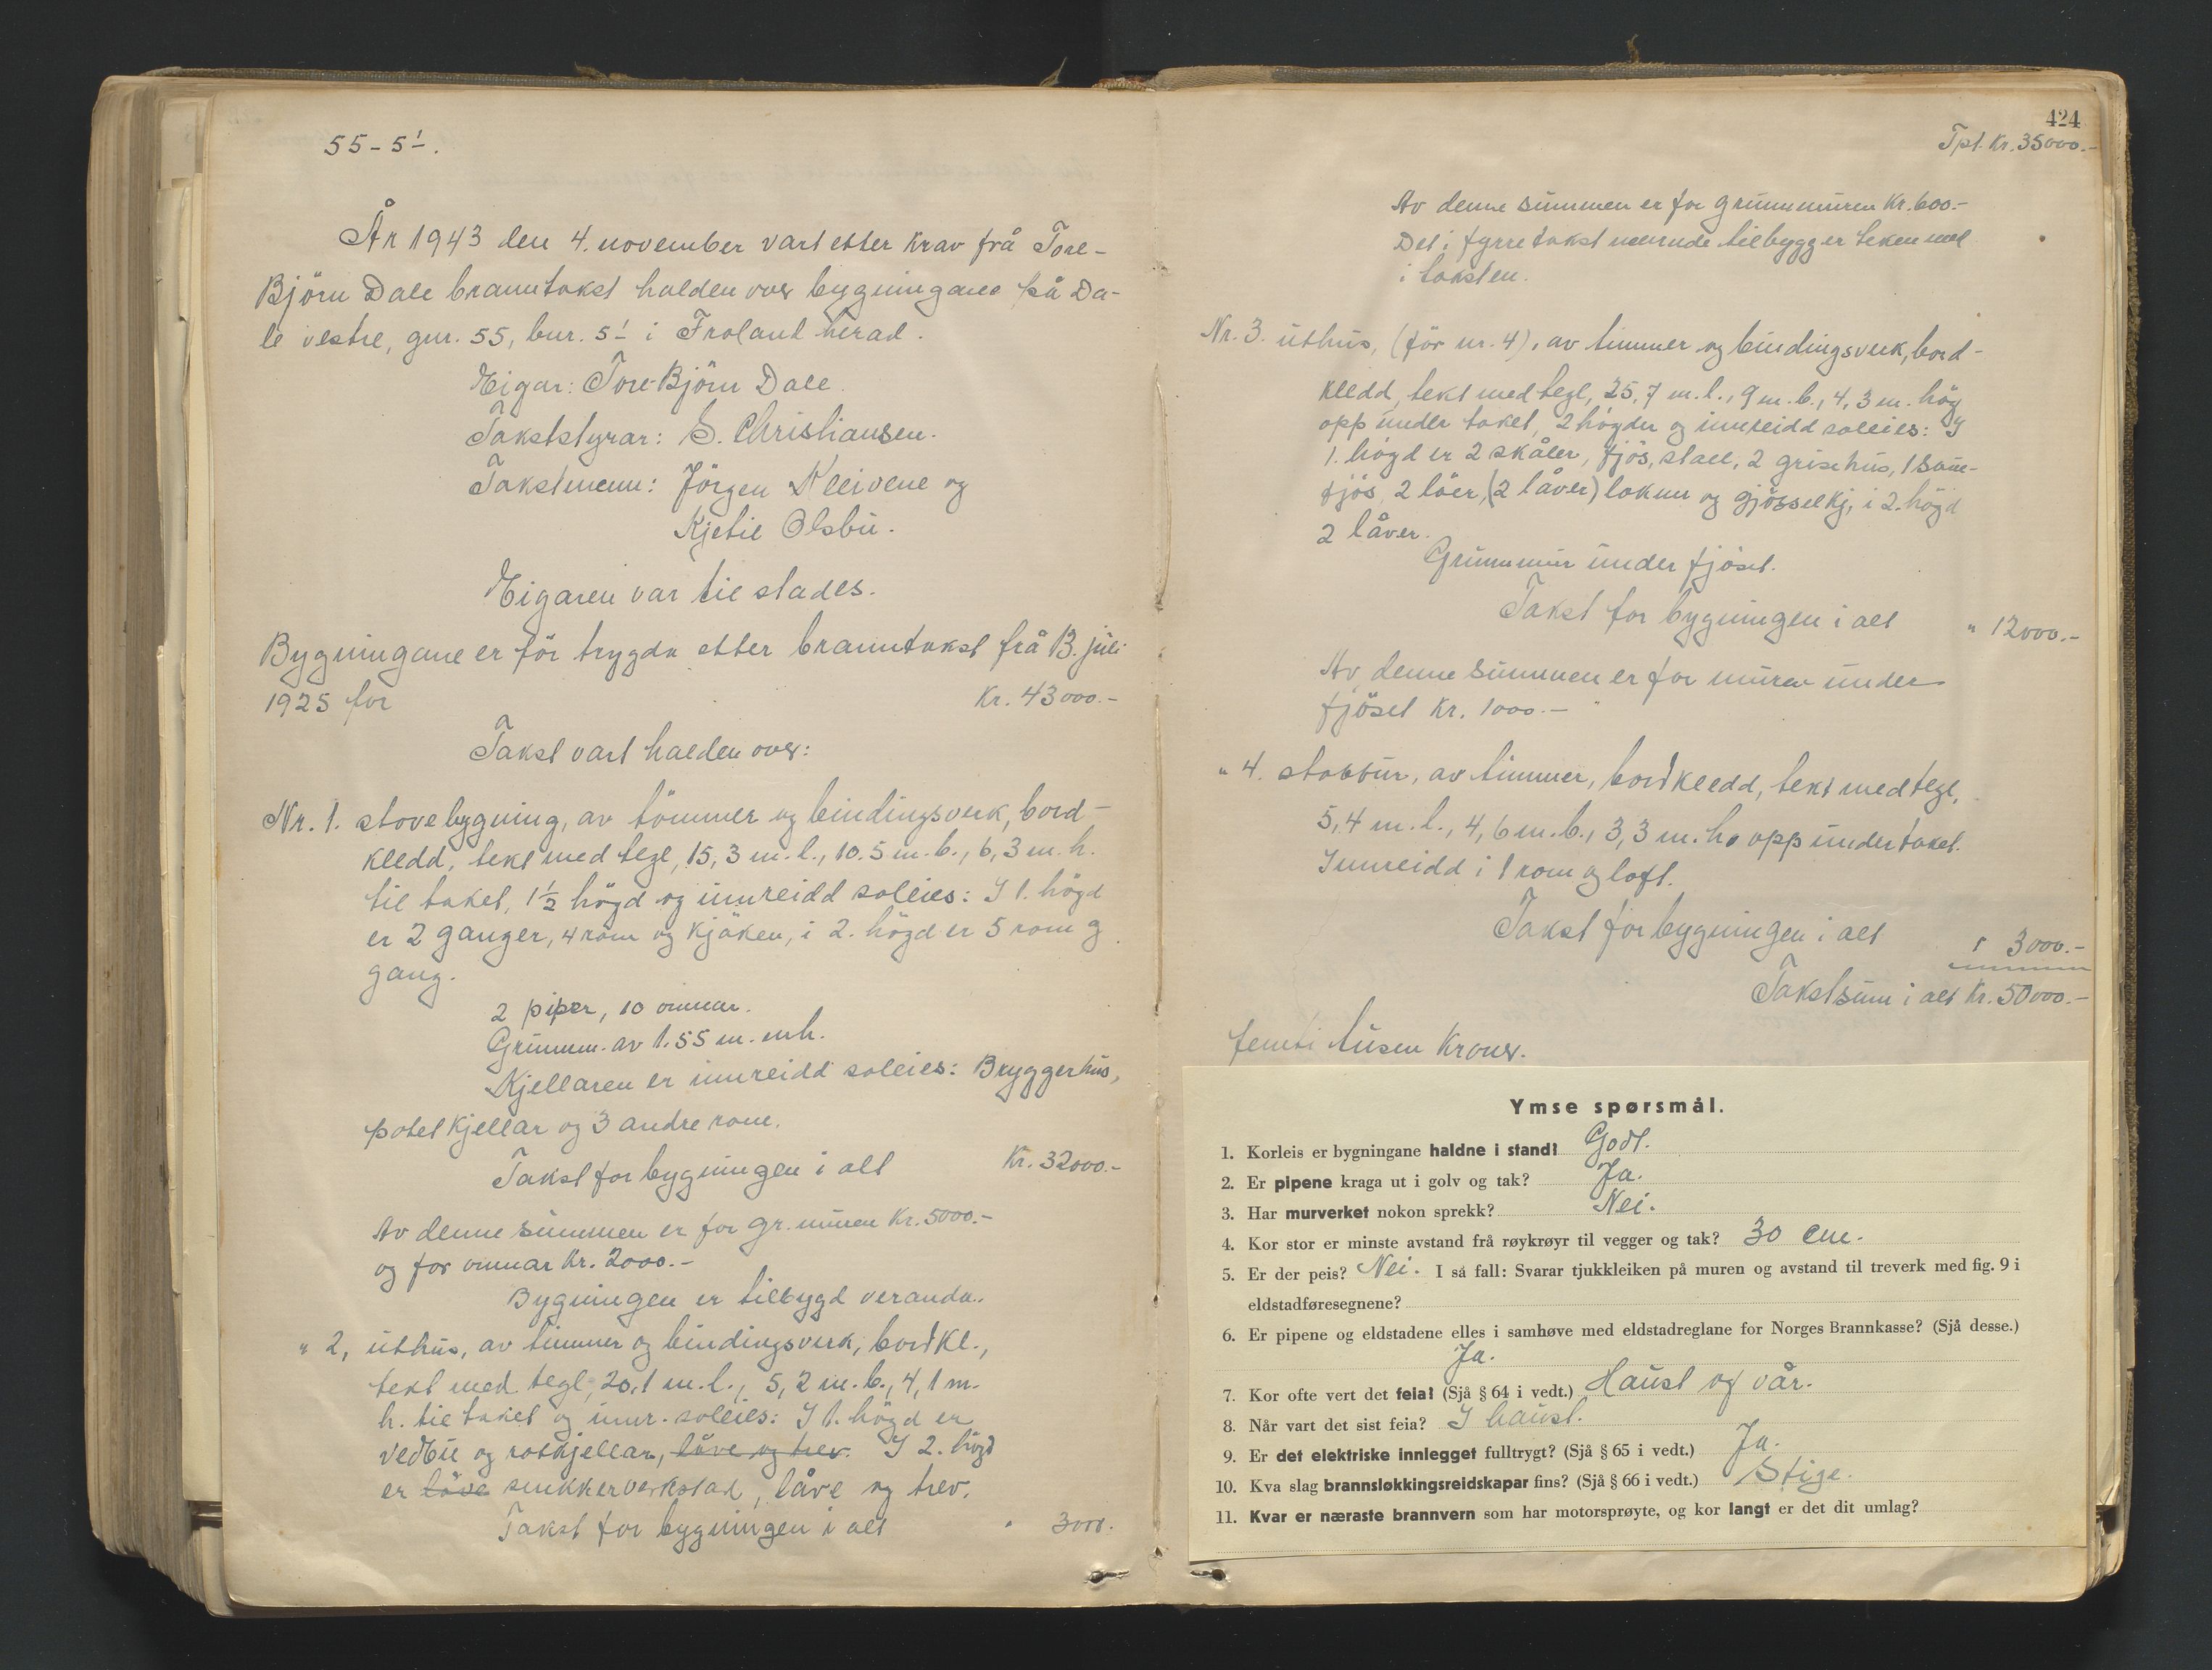 55-5¹.
År 1943 den 4. november vart etter krav frå Tore-
Björn Dale branntakst halden over bygningane på Da-
le vestre, gnr. 55, bnr. 5¹ i Froland herad.
Eigar: Tore-Björn Dale.
Takststyrar: S. Christiansen.
Takstmenn: Jörgen Kleivene og
Kjetil Olsbu.
Eigaren var til stades.
Bygningane er för trygda etter branntakst frå 13. juli
1925 for Kr. 43000.-
Takst vart halden over:
Nr. 1. stovebygning, av tömmer og bindingsverk, bord-
kledd, tekt med tegl, 15,3 m.l., 10.5 m.b., 6,3 m.h.
til taket, 1½ högd og innreidd soleies: I 1. högd
er 2 ganger, 4 rom og kjöken, i 2. högd er 5 rom og
gang.
2 piper, 10 omnar.
Grunnm. av 1.55 m. mh.
Kjellaren er innreidd soleies: Bryggerhus,
potetkjellar og 3 andre rom.
Takst for bygningen i alt Kr. 32000.-
Av denne summen er for gr.muren Kr. 5000.-
og for omnar Kr. 2000.-
Bygningen er tilbygd veranda.
" 2, uthus, av timmer og bindingsverk, bordkl.,
tekt med tegl, 20,1 m.l., 5,2 m.b., 4,1 m.
h. til taket og innr. soleies: I 1. högd er
vedbu og rotkjellar, löve og trev. I 2. högd
er löve snikkerverkstad, låve og trev.
Takst for bygningen i alt " 3000.
424
Tpt. Kr. 35000.-
Av denne summen er for grunnmuren Kr. 600.-
Det i fyrre takst nemnde tilbygg er teken med
i taksten.
Nr. 3. uthus, (för nr. 4), av timmer og bindingsverk, bord-
kledd, tekt med tegl, 25,7 m.l., 9 m.b., 4,3 m. hög
opp under taket, 2 högder og innreidd soleies: I
1. högd er 2 skåler, fjös, stall, 2 grisehus, 1 saue-
fjös, 2 löer, (2 låver) lokum og gjösselkj, i 2. högd
2 låver.
Grunnmur under fjöset.
Takst for bygningen i alt " 12000.-
Av denne summen er for muren under
fjöset Kr. 1000.-
" 4. stabbur, av timmer, bordkledd, tekt med tegl,
5,4 m.l., 4,6 m.b., 3,3 m.h. opp under taket.
Innreidd i 1 rom og loft.
Takst for bygningen i alt " 3000.-
Takstsum i alt Kr. 50000.-
femti tusen Kroner.
Ymse spørsmål.
1. Korleis er bygningane haldne i stand? Godt.
2. Er pipene kraga ut i golv og tak? Ja.
3. Har murverket nokon sprekk? Nei.
4. Kor stor er minste avstand frå røykrøyr til vegger og tak? 30 cm.
5. Er der peis? Nei. I så fall: Svarar tjukkleiken på muren og avstand til treverk med fig. 9 i
eldstadføresegnene?
6. Er pipene og eldstadene elles i samhøve med eldstadreglane for Norges Brannkasse? (Sjå desse.)
Ja.
7. Kor ofte vert det feia? (Sjå § 64 i vedt.) Haust og vår.
8. Når vart det sist feia? I haust.
9. Er det elektriske innlegget fulltrygt? (Sjå § 65 i vedt.) Ja.
10. Kva slag brannsløkkingsreidskapar fins? (Sjå § 66 i vedt.) Stige.
11. Kvar er næraste brannvern som har motorsprøyte, og kor langt er det dit umlag?